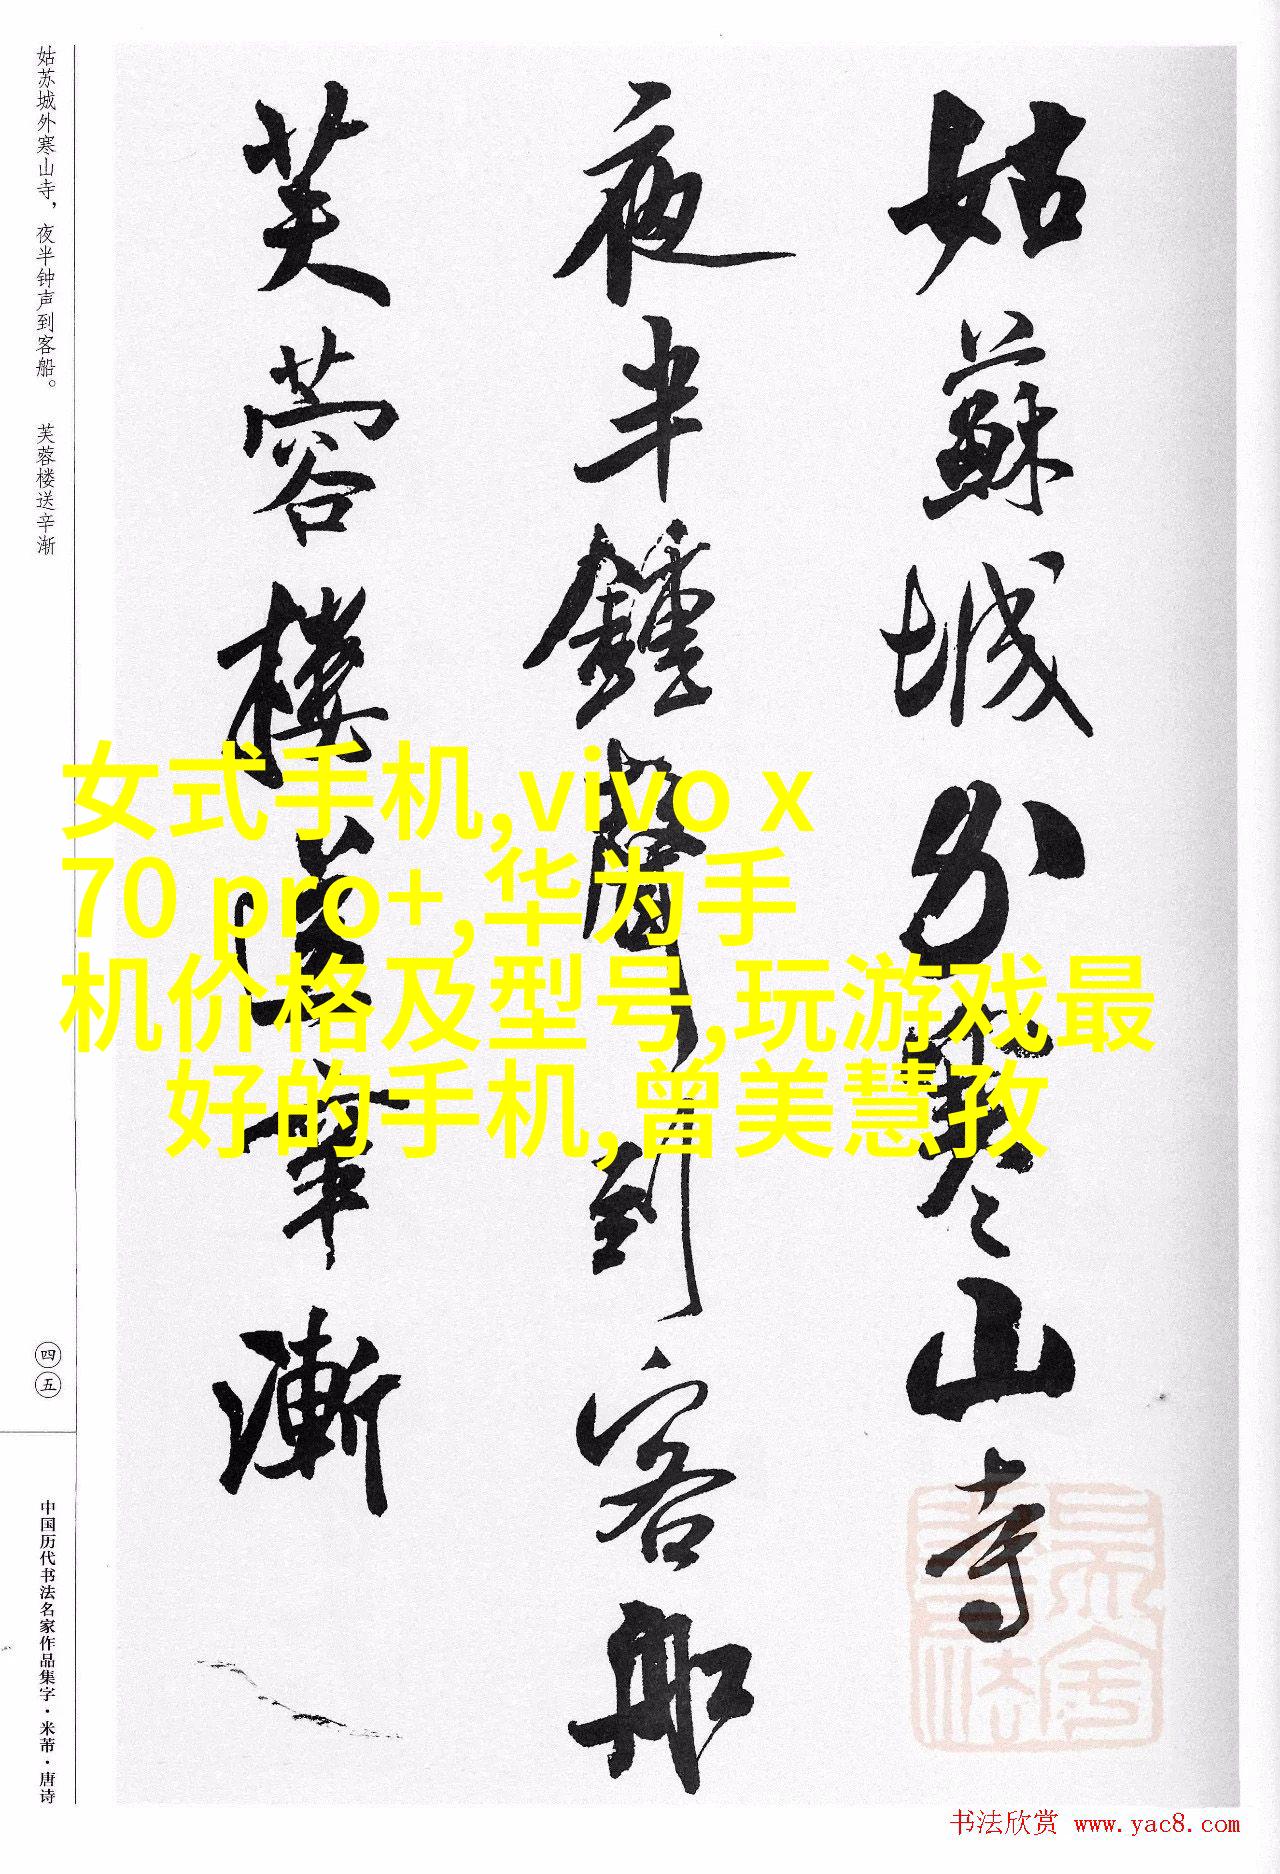 姑蘇城外寒山寺
夜半鍾聲到客船
芙蓉樓送辛漸
姑苏城外寒山寺，夜半钟声到客船。 芙蓉楼送辛渐
四五
中国历代书法名家作品集字·米芾·唐诗
女式手机,vivo x
70 pro+,华为手
机价格及型号,玩游戏最
好的手机,曾美慧孜
书法欣赏 www.yac8.com